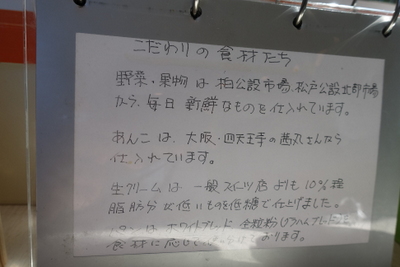 こだわりの食材たち
野菜・果物は 柏公設市場、松戸公設北部市場
から、毎日 新鮮なものを仕入れています。
あんこは、大阪・四天王寺の茜丸さんなら
仕入れています。
生クリームは 一般スイーツ店よりも10%程
脂肪分に低いものを低糖で仕上げました。
パンは、ホワイトブレッド、全粒粉
食材に応じて おります。